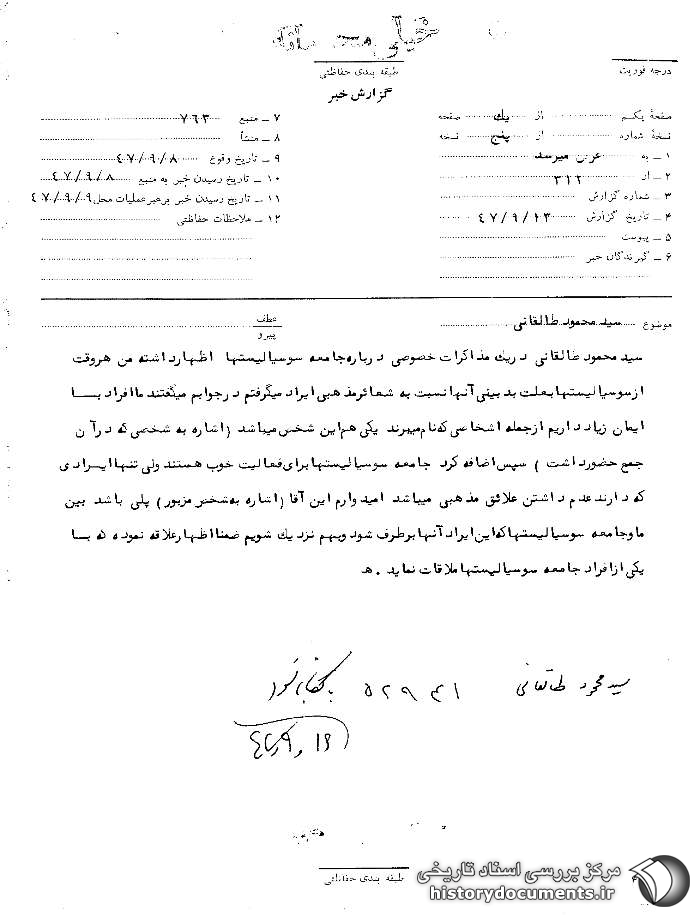 طبقه بندی حفاظتی
درجه فوریت
گزارش خبر
صفحهٔ یکم از یک صفحه
نسخهٔ شماره از پنج نسخه
۱ ـ به عرض میرسد
۲ ـ از ۳۱۲
۳ ـ شماره گزارش
۴ ـ تاریخ گزارش ۴۷/۹/۱۳
۵ ـ پیوست
۶ ـ گیرندگان خبر
۷ ـ منبع ۷۶۳
۸ ـ منشأ
۹ ـ تاریخ وقوع ۴۷/۹/۸
۱۰ ـ تاریخ رسیدن خبر به منبع ۴۷/۹/۸
۱۱ ـ تاریخ رسیدن خبر برهبر عملیات محل ۴۷/۹/۹
۱۲ ـ ملاحظات حفاظتی
موضوع سید محمود طالقانی
عطف
پیرو
سید محمود طالقانی در یک مذاکرات خصوصی درباره جامعه سوسیالیستها اظهار داشته من هروقت
از سوسیالیستها بعلت بدبینی آنها نسبت به شعائر مذهبی ایراد میگرفتم در جوابم میگفتند ما افراد بــا
ایمان زیاد داریم از جمله اشخاصی که نام میبرند یکی هم این شخص میباشد (اشاره به شخصی که در آن
جمع حضور داشت ) سپس اضافه کرد جامعه سوسیالیستها برای فعالیت خوب هستند ولی تنها ایرادی
که دارند عدم داشتن علائق مذهبی میباشد امیدوارم این آقا (اشاره به شخص مزبور) پلی باشد بین
ما و جامعه سوسیالیستها که این ایراد آنها برطرف شود و بهم نزدیک شویم ضمنا اظهار علاقه نموده که بــا
یکی از افراد جامعه سوسیالیستها ملاقات نماید . ه
سید محمود طالقانی
طبقه بندی حفاظتی
مرکز بررسی اسناد تاریخی
historydocuments.ir